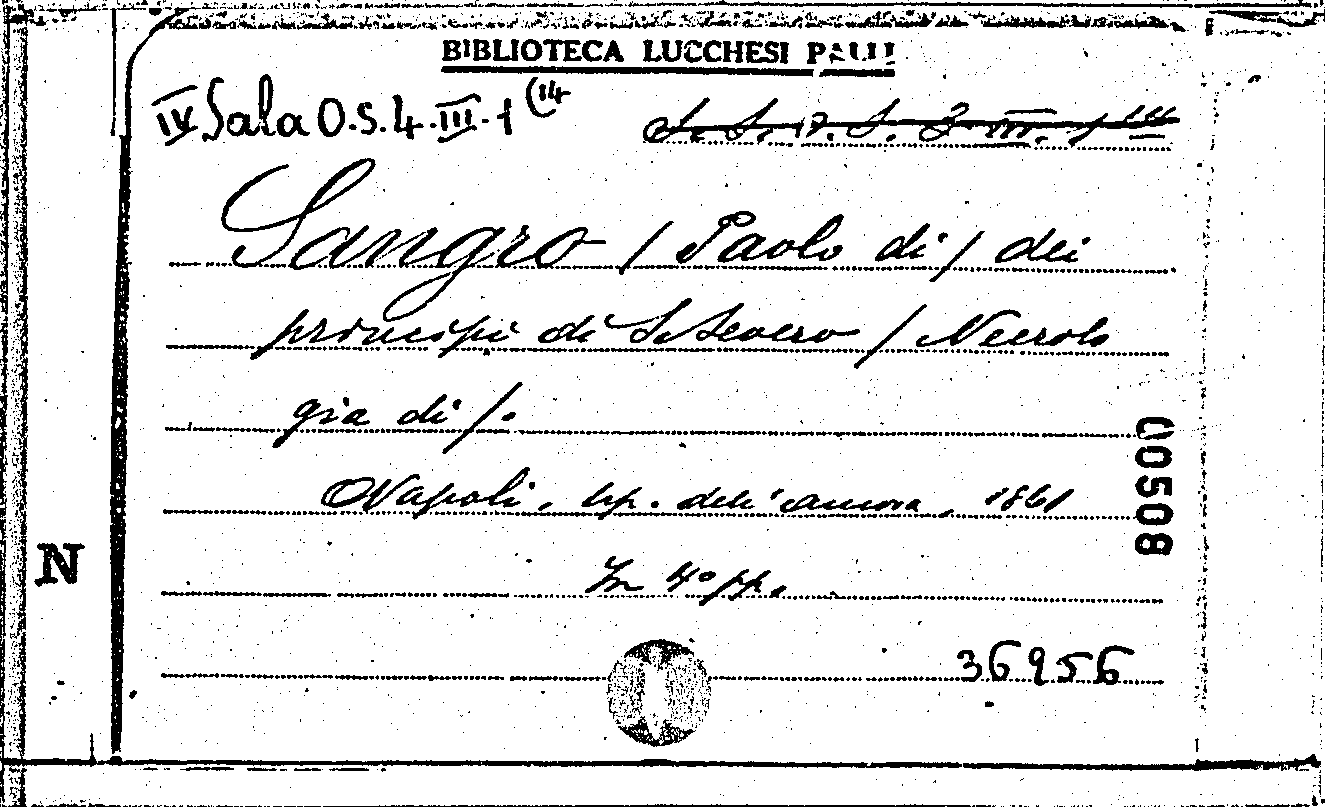 BIBLIOTECA LUCCHESI PALLI
IV Sala O.S.4.III.1(14
Sangro / Paolo di / dei
principi di S. Severo / Necrolo
gia di /.
Napoli, tip. dell'ancora, 1861
In 4° pp.
00508
N
36956